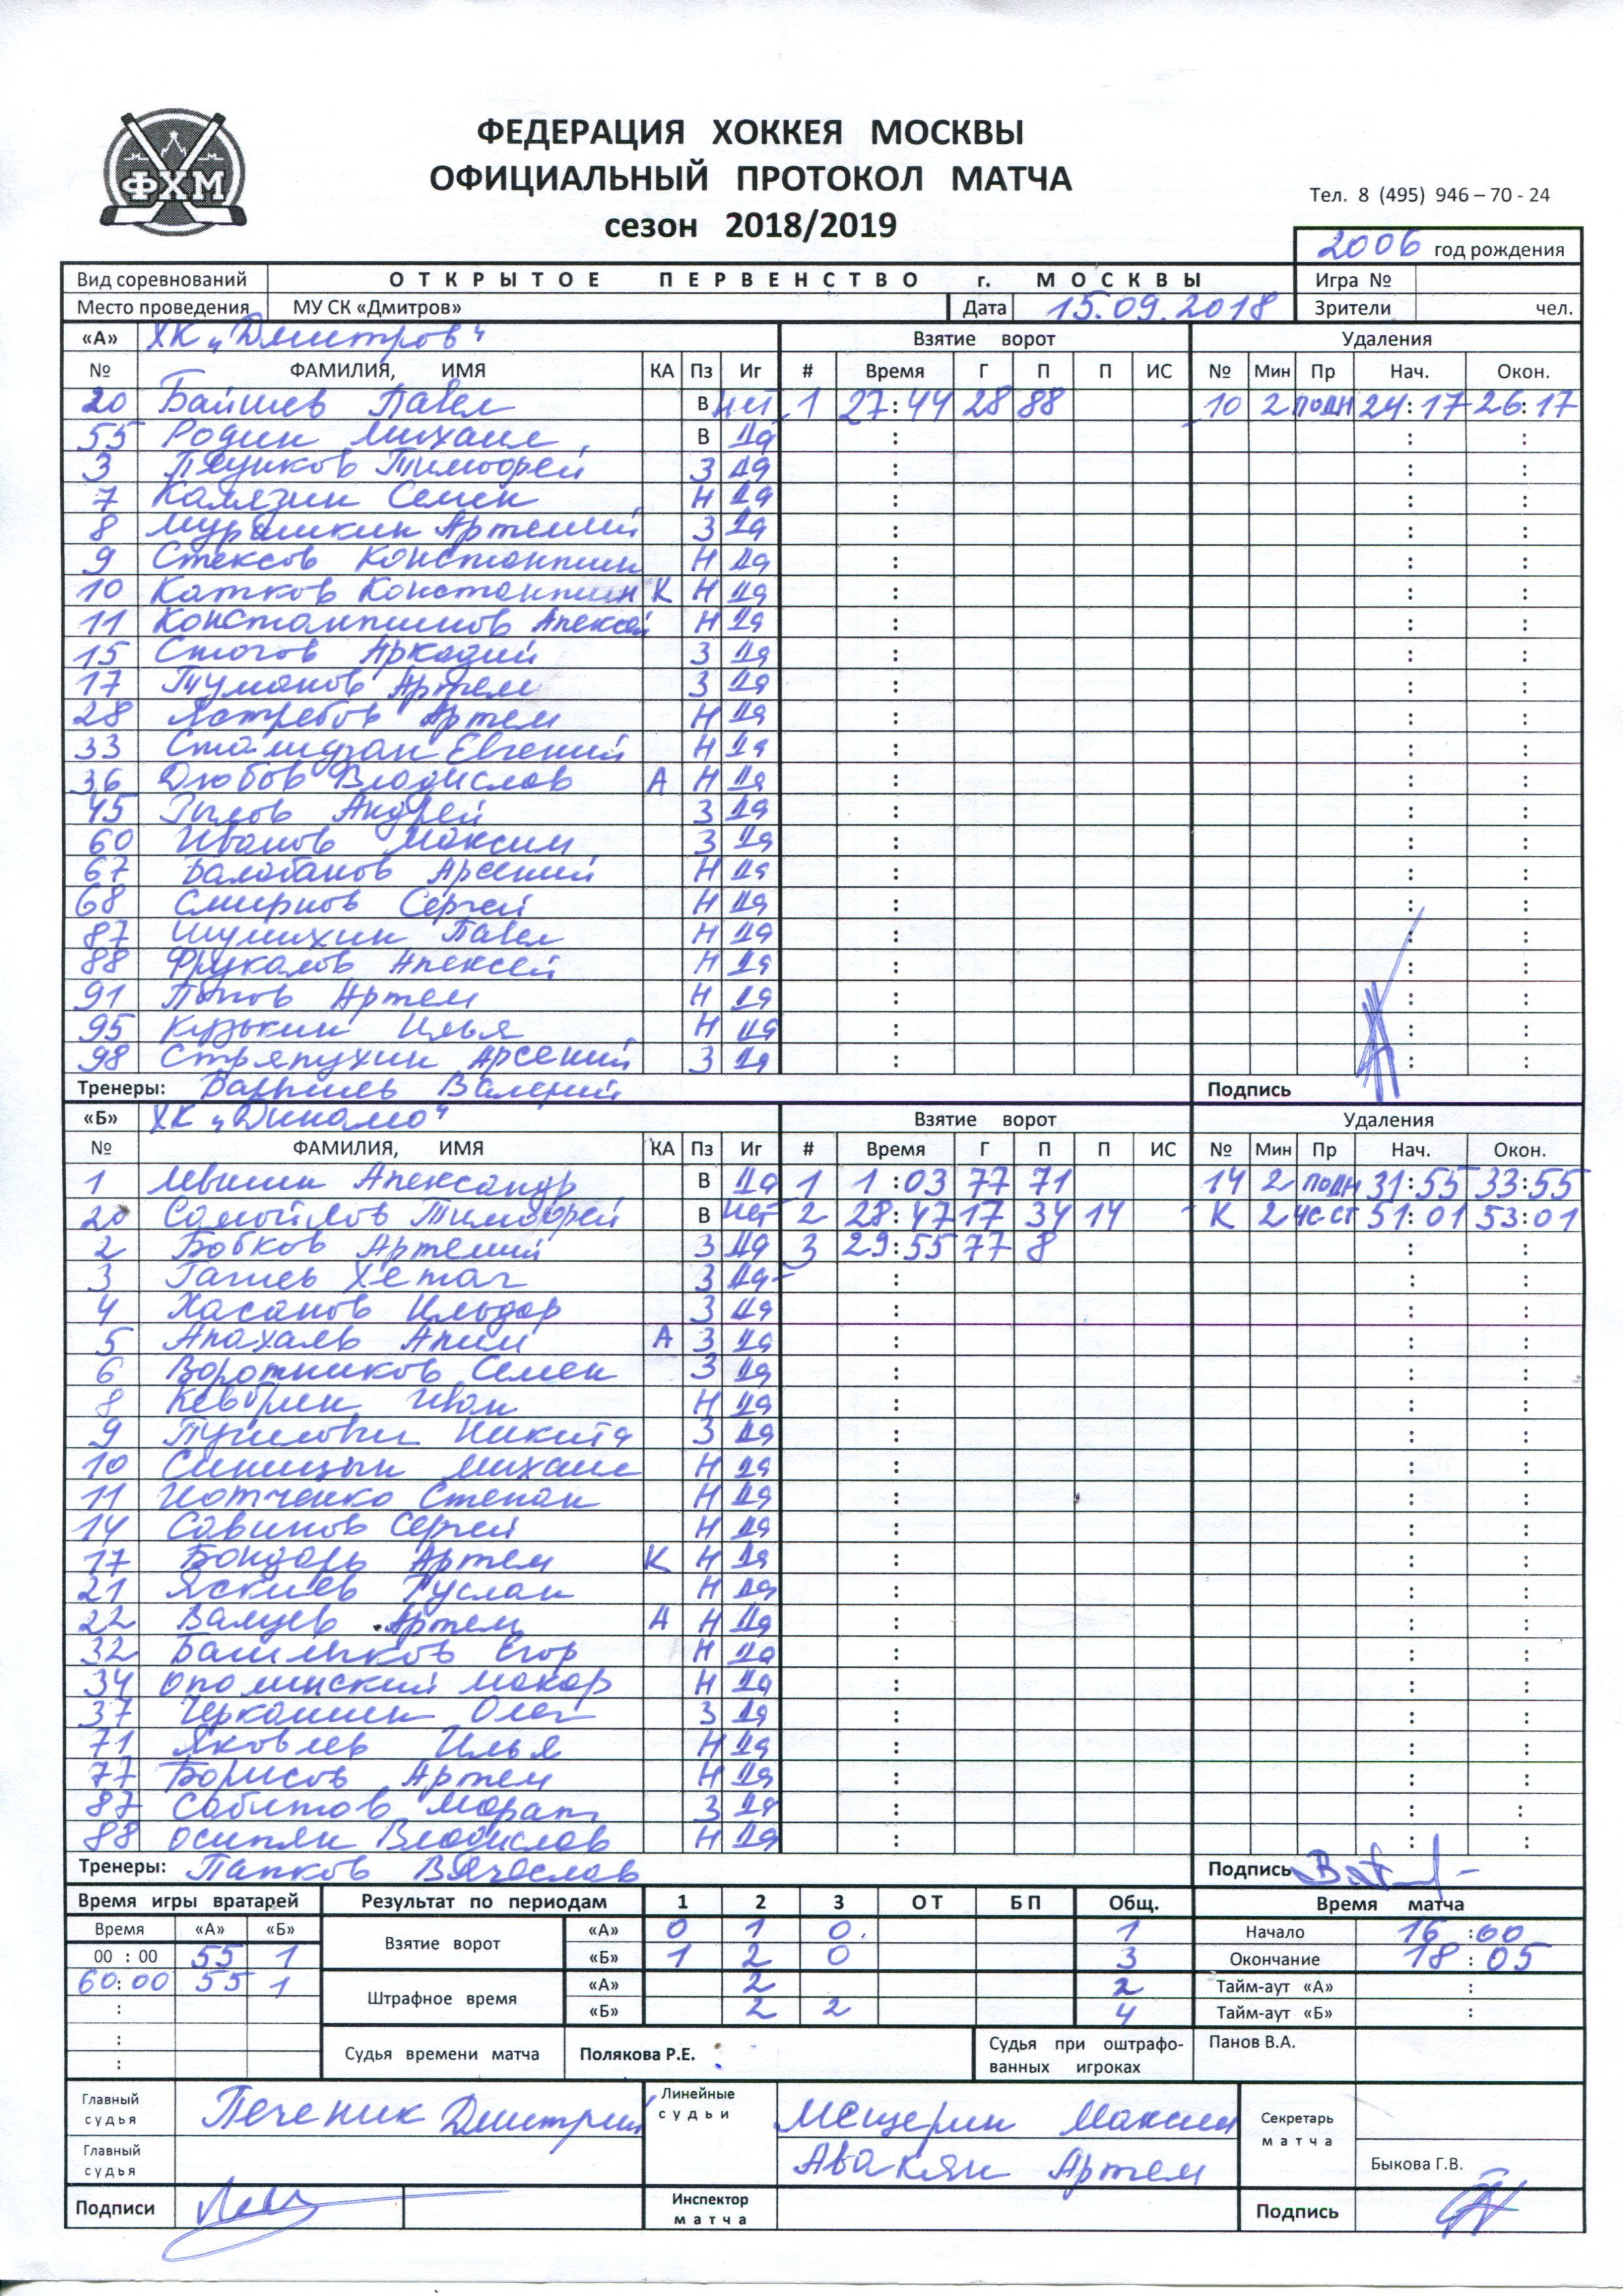 ФЕДЕРАЦИЯ ХОККЕЯ МОСКВЫ
ОФИЦИАЛЬНЫЙ ПРОТОКОЛ МАТЧА
сезон 2018/2019
ФХМ
Тел. 8 (495) 946–70-24
2006 год рождения
Вид соревнований ОТКРЫТОЕ ПЕРВЕНСТВО г. МОСКВЫ Игра №
Место проведения МУ СК «Дмитров» Дата 15.09.2018 Зрители чел.
«А» ХК „Дмитров" Взятие ворот Удаления
№ ФАМИЛИЯ, ИМЯ КА Пз Иг # Время Г П П ИС № Мин Пр Нач. Окон.
20 Павел В нет 1 27:44 28 88 10 2 подн 24:17 26:17
55 Родин Михаил В да
3 Тимофей З да
7 Калязин Семен Н да
8 Мурашкин Артемий З да
9 Стексов Константин Н да
10 Катков Константин К Н да
11 Константинов Алексей Н да
15 Стогов Аркадий З да
17 Туманов Артем З да
28 Ястребов Артем Н да
33 Евгений Н да
36 Дюбов Владислав А Н да
45 Андрей З да
60 Иванов Максим З да
67 Балабанов Арсений Н да
68 Смирнов Сергей Н да
87 Шумихин Павел Н да
88 Фрукалов Алексей Н да
91 Попов Артем Н да
95 Кузькин Илья Н да
98 Стряпухин Арсений З да
Тренеры: Валерий Подпись
«Б» ХК „Динамо" Взятие ворот Удаления
№ ФАМИЛИЯ, ИМЯ КА Пз Иг # Время Г П П ИС № Мин Пр Нач. Окон.
1 Левшин Александр В да 1 1:03 77 71 14 2 подн 31:55 33:55
20 Самойлов Тимофей В нет 2 28:47 17 34 14 К 2 чс-ст 51:01 53:01
2 Бобков Артемий З да 3 29:55 77 8
3 Гагиев Хетаг З да
4 Хасанов Ильдар З да
5 Алим А З да
6 Воротников Семен З да
8 Иван Н да
9 Никита З да
10 Синицын Михаил Н да
11 Степан Н да
14 Савинов Сергей Н да
17 Бондарь Артем К Н да
21 Руслан Н да
22 Валцев Артем А Н да
32 Башлыков Егор Н да
34 Ополинский Макар Н да
37 Черкашин Олег З да
71 Яковлев Илья Н да
77 Борисов Артем Н да
87 Сабитов Марат З да
88 Осипян Владислав Н да
Тренеры: Папков Вячеслав Подпись
Время игры вратарей Результат по периодам 1 2 3 ОТ БП Общ. Время матча
Время «А» «Б» Взятие ворот «А» 0 1 0 1 Начало 16:00
00 : 00 55 1 «Б» 1 2 0 3 Окончание 18:05
60:00 55 1 Штрафное время «А» 2 2 Тайм-аут «А» :
«Б» 2 2 4 Тайм-аут «Б» :
Судья времени матча Полякова Р.Е. Судья при оштрафо-ванных игроках Панов В.А.
Главный судья Печеник Дмитрий Линейные судьи Мещерин Максим Секретарь матча
Главный судья Авакян Артем Быкова Г.В.
Подписи Инспектор матча Подпись